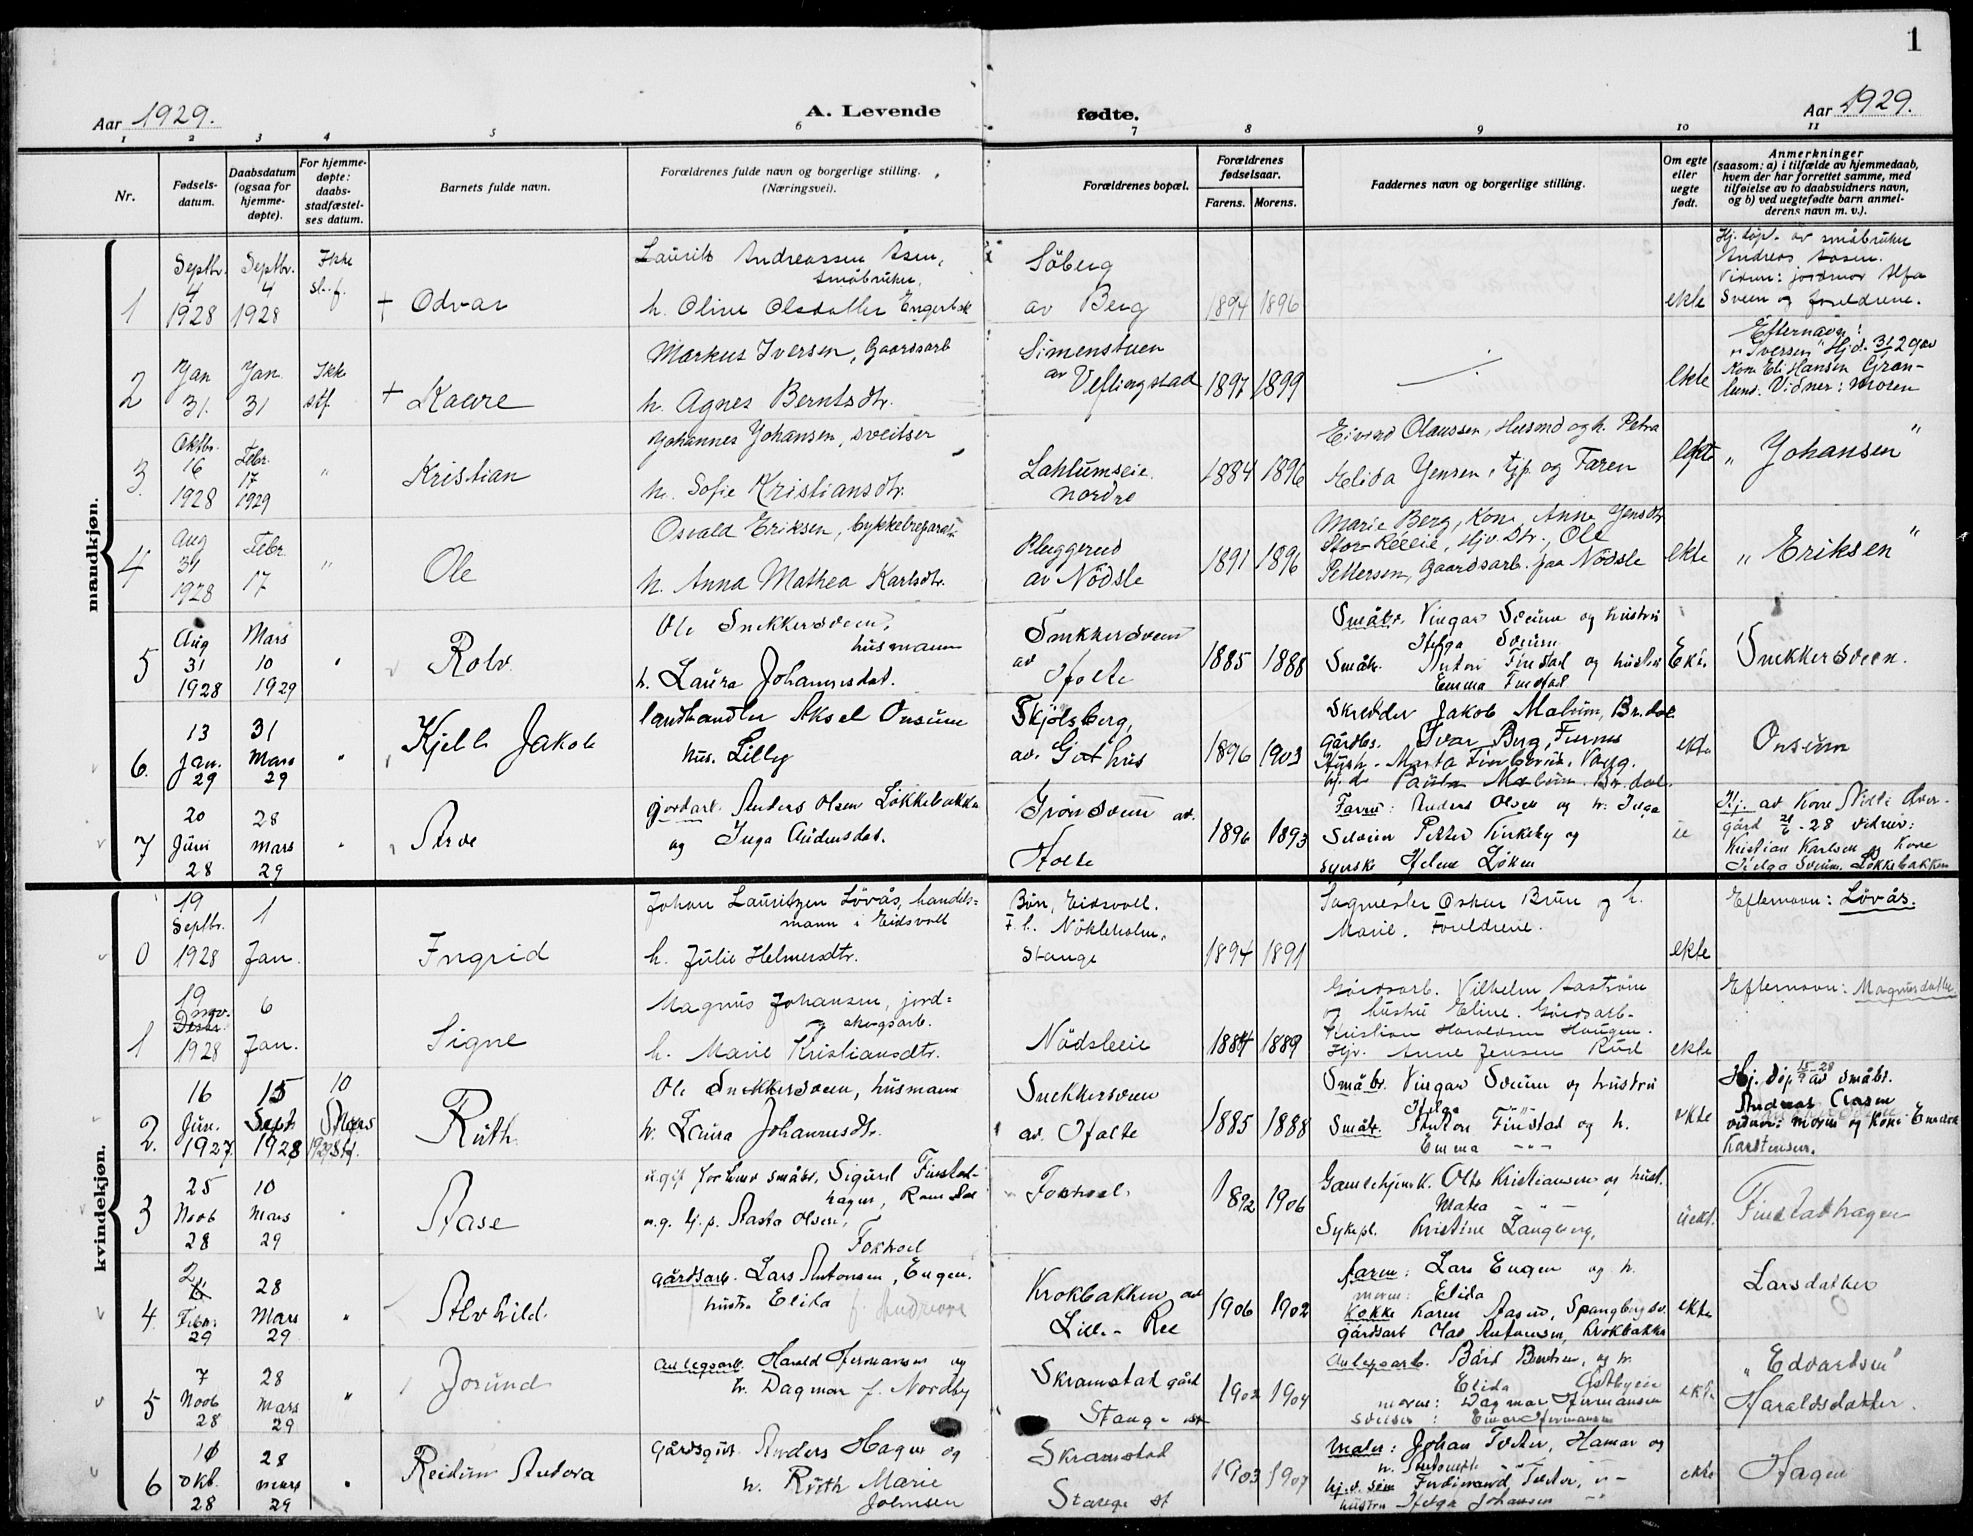 1
Aar 1929.
A. Levende fødte.
Aar 1929.
1 2 3 4 5 6 7 8 9 10 11
Nr.
Fødsels-
datum.
Daabsdatum
(ogsaa for
hjemme-
døpte).
For hjemme-
døpte:
daabs-
stadfæstel-
ses datum.
Barnets fulde navn.
Forældrenes fulde navn og borgerlige stilling.
(Næringsvei).
Forældrenes bopæl.
Forældrenes
fødselsaar.
Farens. Morens.
Faddernes navn og borgerlige stilling.
Om egte
eller
uegte
født.
Anmerkninger
(saasom: a) i tilfælde av hjemmedaab,
hvem der har forrettet samme, med
tilføielse av to daabsvidners navn,
og b) ved uegtefødte barn anmel-
derens navn m. v.).
mandkjøn.
1
Septbr.
4
1928
Septbr.
4
1928
Ikke
st. f.
+ Odvar
Laurits Andreassen Åsen,
småbruker,
h. Oline Olsdatter
Söberg
av Berg
1894 1896
ekte
Hj. döpt. av småbruker
Andreas Aasen.
Vidner: jordmor Alfa
Sveen og foreldrene.
2
Jan
31.
Jan.
31
Ikke
stf.
+ Kaare
Markus Iversen, Gaardsarb
h. Agnes Berntsdtr.
Simenstuen
av Veflingstad
1897 1899
ekte
Efternavn:
"Iversen" Hjd. 31/1 29 av
Kone Eli Hansen Grøn-
lund. Vidner: moren
3.
Oktbr.
16
1928
Febr.
17
1929
"
Kristian
Johannes Johansen, sveitser
h. Sofie Kristiansdtr.
Lahlumseie
nordre
1884 1896
Eivind Olaussen, Husmd og h. Petra
Elida Jensen, tjp. og Faren
ekte
" Johansen "
4
Aug
31
1928
Febr.
17
"
Ole
Osvald Eriksen, sykkelreparatör
h. Anna Mathea Karlsdtr.
Pluggerud
av Nödsle
1891 1896
Marie Berg, Kone, Anne Jensdtr
Stor-Reeeie, Hjv. Dtr., Ole
Pettersen, Gaardsarb. paa Nödsle
ekte
" Eriksen "
5
Aug
31
1928
Mars
10
1929
"
Rolv.
Ole Snekkersveen,
husmann
h. Laura Johannesdat.
Snekkersveen
av
Hfolte
1885 1888
Småbr. Vingar Sveum og hustru
Helga Sveum
Småbr. Anton Finstad og hustru
Emma Finstad
Ekte
Snekkersveen.
6.
13
Jan.
29
31
Mars
29
"
Kjell Jakob
landhandler Aksel Onsum
hus. Lilly
Skjölsberg,
av. Gothus
1896 1903
Skredder Jakob Malum, Br.dal
Gårdbr. Ivar Berg, Furnes
ekte
Onsum
7
20
Juni
28
28
mars
29
"
Arve
gårdarb. Anders Olsen Løkkebakken
og Inga Andersdat.
Grönsveen av.
Holte
1896 1893
Farm: Anders Olsen og h. Inga
og
Helene Løken
ie
28 vidner:
Kristian Karlsen og Kone
Helga Sveum, Løkkebakken
kvindekjøn.
0
19
Septbr.
1928
1
Jan.
Ingrid
Johan Lauritzen Lövås, handels=
mann i Eidsvoll
h. Julie Helmersdtr.
Bön, Eidsvoll.
F. h. Nökleholm,
Stange
1894 1891
Sagmester Oskar Brun og h.
Marie. Foreldrene.
ekte
Efternavn: Lövås.
1
19
nov.
1928
6
Jan.
Signe
Magnus Johansen, jord=
og skogsarb.
h. Marie Kristiansdtr.
Nödsleeie
1884 1889
Gårdsarb. Vilhelm Aaström
og hustru Eline. Gårdsarb-
Kristian Haraldsen Haugen.
Hjv. Anne Jensen Rud
ekte
Efternavn: Magnusdatter
2.
16
Jun.
1927
15
Sept
1928
10
Mars
1929 Stf.
Ruth.
Ole Snekkersveen, husmann
h. Laura Johannesdtr.
Snekkersveen
av. Hfolte
1885 1888
Småbr. Vingar Sveum og hustru
Helga
Småbr. Anton Finstad og h.
Emma - "-
ekte
Hj. döp. 15/9-28 av småbr.
Andreas Aasen
vidner: moren og Kone Emma
Karstensen.
3
25
Noob
28
10
Mars
29
"
Aase
ugif forhenv småbr. Sigurd Finstad-
hagen, Romedal
u.g. tj.p. Aasta Olsen,
Fokhol
Fokhol
1892 1906
Otto Kristiansen og hust.
Matea
Sykepl. Kristine Langberg,
üekt.
Finstadhagen
4.
2
Febr.
29
28
Mars
29
"
Alvhild.
gårdsarb. Lars Antonsen, Engen.
hustr. Elida f. Andreove
Krokbakken av
Lille-Ree
1906 1902
faren: Lars Engen og h.
moren: Elida
Kokke Karen Aasen, Spangberg
gårdsarb Antonsen, Krokbakken
ekte
Larsdatter
5
7
Noob
28
28
mars
29
"
Jorund
Anlegsarb. Harald Hermansen og
h. Dagmar f. Nordby
Skramstad gård
Stange
1902 1904
Anlegsarb. Bård Berntsen, og h.
Elida Östbyeie
moren: Dagmar Hermansen
sveiser: Einar Hermansen
ekte
"Edvardsen"
Haraldsdatter.
6
10
Okt.
28
28
mars
29
"
Reidun Andora
Gårdsgut. Anders Hagen og
h. Ruth Marie
Johnsen
Skramstad
Stange st
1903 1907
Maler: Johan Tveter, Hamar og
h. Antonette
Ferdinand Tveter, "-
hustru Helga Johansen "-
ekte
Hagen